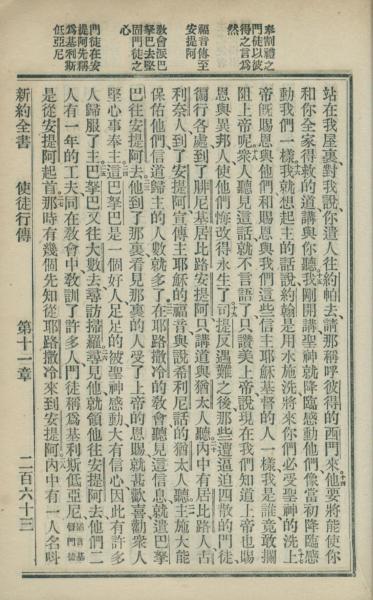 奉割禮之
門徒以彼
得之言爲
然
福音傳至
安提阿
教會派巴
拏巴去堅
固門徒之
心
門徒在安
提阿先稱
爲基利斯
低亞尼
站在我屋裏對我說你遣人往約帕去請那稱呼彼得的西門來他要將能使你
和你全家得救的道講與你聽我剛開講聖神就降臨感動他們像當初降臨感
動我們一樣我就想起主的話說約翰是用水施洗將來你們必受聖神的洗上
帝旣賜恩與他們和賜恩與我們這些信主耶穌基督的人一樣我是誰竟敢攔
阻上帝呢衆人聽見這話就不言語了只讚美上帝說現在我們知道上帝也賜
恩與異邦人使他們悔改得永生了司提反遇難之後那些遭逼迫四散的門徒
徧行各處到了腓尼基居比路安提阿只講道與猶太人聽內中有居比路人古
利奈人到了安提阿宣傳主耶穌的福音與說希利尼話的猶太人聽主施大能
保佑他們信道歸主的人數就多了在耶路撒冷的教會聽見這信息就遣巴拏
巴往安提阿去他到了那裏看見那裏的人受了上帝的恩賜就甚歡喜勸衆人
堅心事奉主這巴拏巴是一個好人足足的被聖神感動大有信心因此有許多
人歸服了主巴拏巴又往大數去尋訪掃羅尋見他就領他往安提阿去他們二
人有一年的工夫同在教會中教訓了許多人門徒稱爲基利斯低亞尼
是從安提阿起首那時有幾個先知從耶路撒冷來到安提阿內中有一人名叫
新約全書 使徒行傳 第十一章 二百六十三